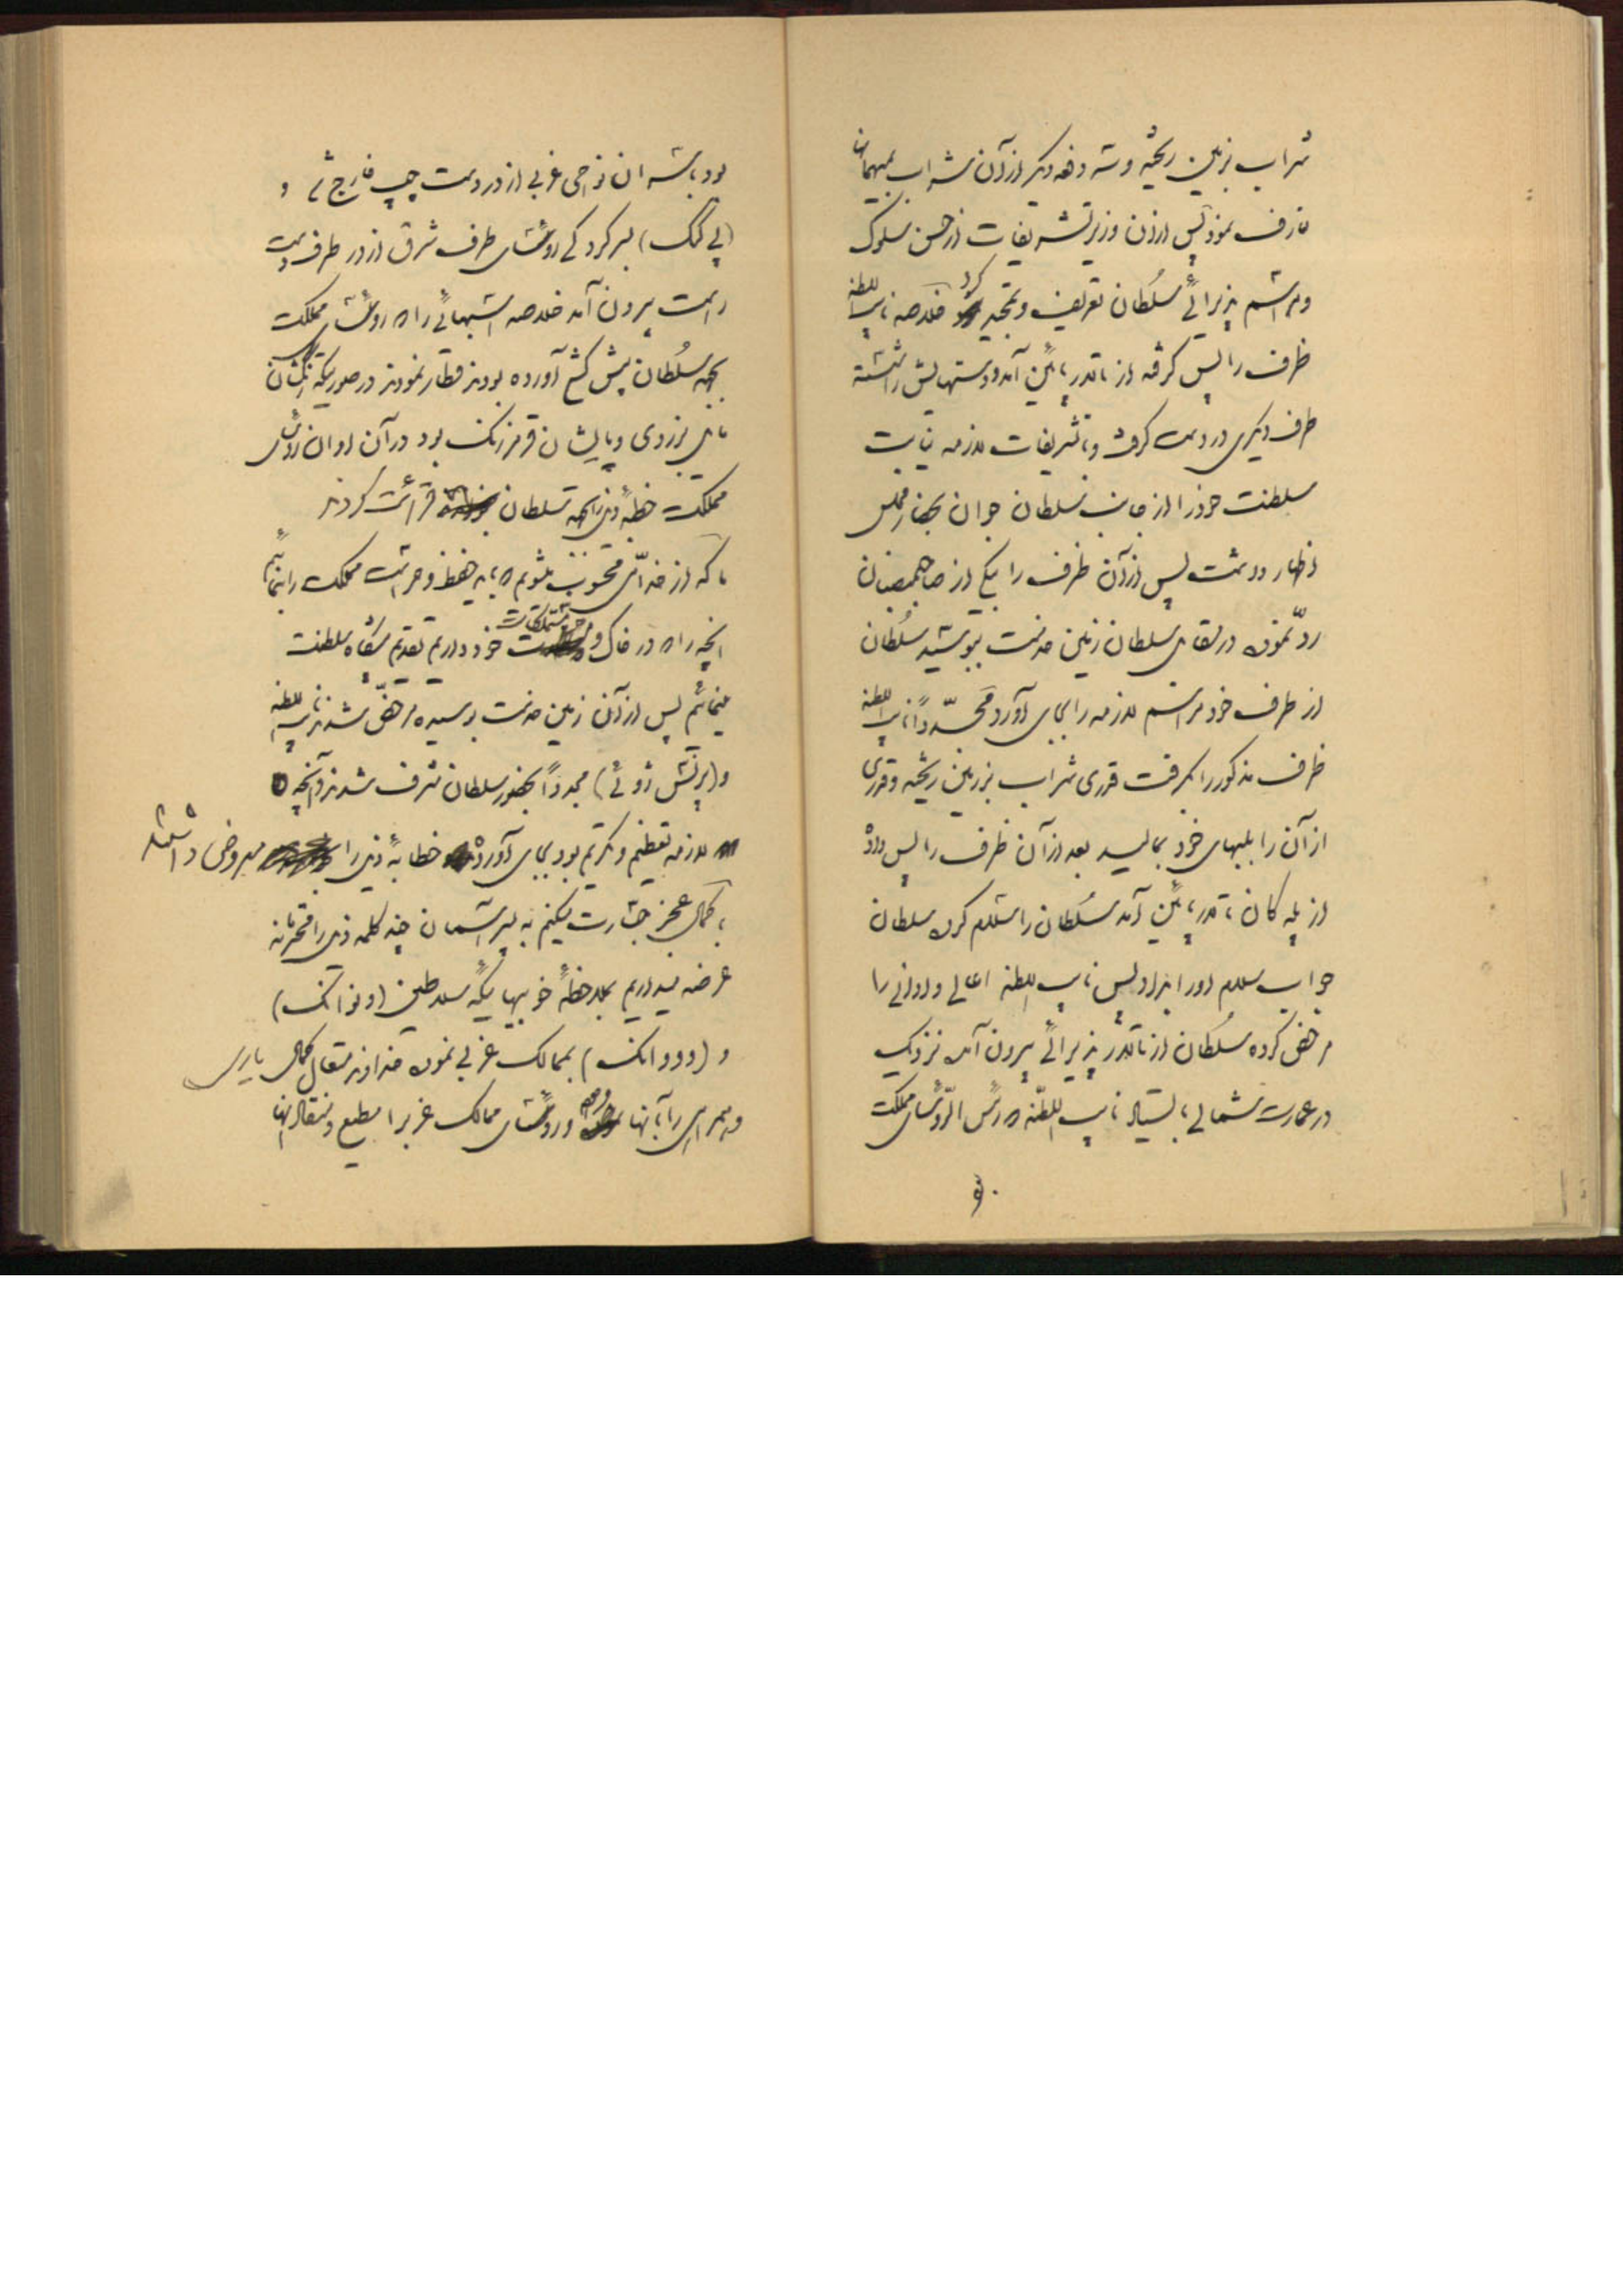 شراب بزمین ریخته و سه دفعه دیگر از آن شراب بمیهمان
تعارف نمود پس از آن وزیر تشریفات از حسن سلوک
و مراسم پذیرائی سلطان تعریف و تمجید کرد خلاصه نایب السلطنه
ظرف را پس گرفته از تالار پائین آمد و دستهایش را شسته
ظرف دیگری در دست گرفت و با تشریفات لازمه نیابت
سلطنت خود را از جانب سلطان جوان بحضار مجلس
اظهار داشت پس از آن ظرف را بیکی از صاحبمنصبان
ردّ نموده در مقابل سلطان زمین خدمت ببوسید سلطان
از طرف خود مراسم لازمه را بجای آورد مجدّداً نایب السلطنه
ظرف مذکور را گرفت قدری شراب بزمین ریخته و قدری
از آن را بلبهای خود بمالید بعد از آن ظرف را پس داد
از پله کان تالار پائین آمد سلطان را سلام کرد سلطان
جواب سلام او را بداد پس نایب السلطنه اعالی و ادانی را
مرخص کرده سلطان از تالار پذیرائی بیرون آمده نزدیک
در عمارت شمالی بایستاد نایب السلطنه و رئیس الرؤسای مملکت
بود با شد ان نواحی غربی از در دست چپ خارج شد و
(پی کنگ) بسر کرد کی رؤسای طرف شرق از در طرف دست
راست بیرون آمد خلاصه اسبهائی را که رؤسای مملکت
بجهه سلطان پیش کش آورده بودند قطار نمودند در صورتیکه رنگشان
مایل بزردی و یالشان قرمز رنگ بود در آن اوان رؤسای
مملکت خطبهٔ ذیل را بجهه سلطان قرائت کردند
ما که از خدّام محسوب میشویم باید حفظ و حراست مملکت را بنمائیم
آنچه را که در خاک و متملکات خود داریم تقدیم پیشگاه سلطنت
مینمائیم پس از آن زمین خدمت بوسیده مرخص شدند نایب السلطنه
و (پرنس ژوئی) مجدداً بحضور سلطان مشرف شدند و آنچه
لازمه تعظیم و تکریم بود بجای آورده خطابهٔ ذیل را معروض داشتند
با کمال عجز جسارت میکنیم به پسر آسمان چند کلمه ذیل را محترمانه
عرضه میداریم بملاحظهٔ خوبیهائیکه سلاطین (ون وانگ)
و (وو وانگ) بممالک غربی نموده خداوند متعال کمال یاری
و همراهی را با آنها کرده و رؤسای ممالک غربی را مطیع و منقاد آنها